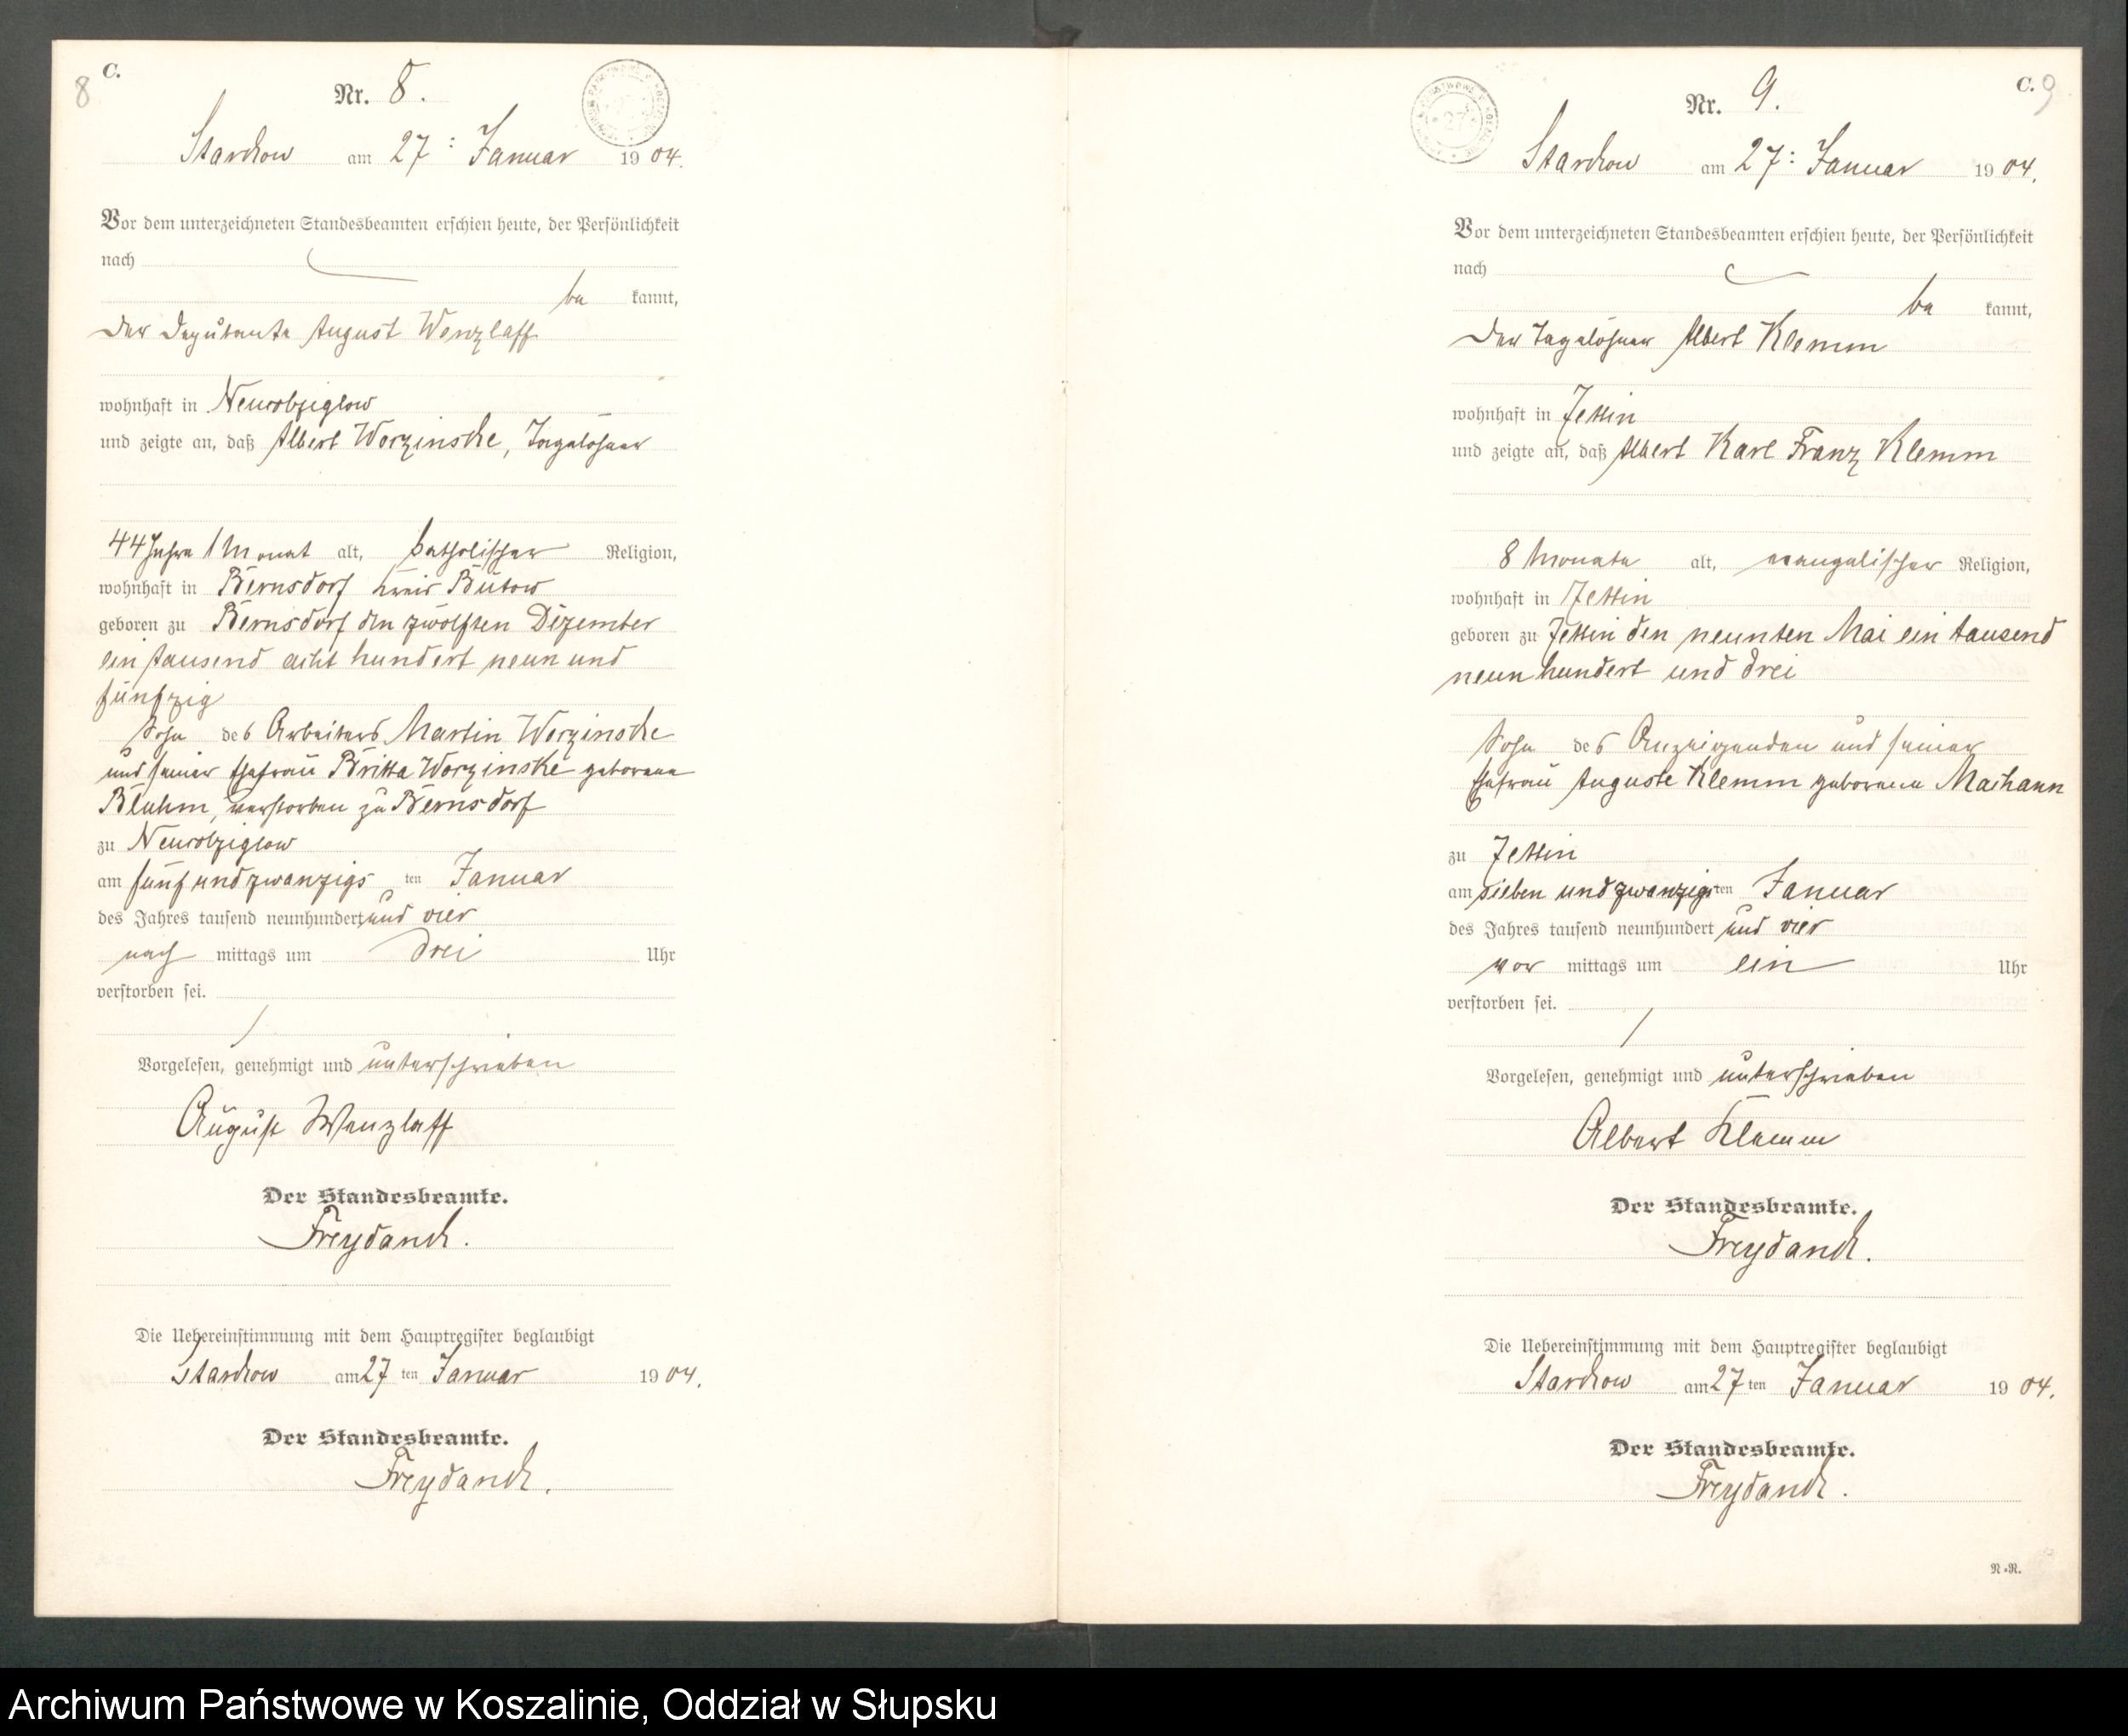 8
C.
Nr. 8.
Starckow am 27: Januar 1904.
Vor dem unterzeichneten Standesbeamten erschien heute, der Persönlichkeit
nach
be kannt,
der Deputante August Wenzlaff
wohnhaft in Neurobziglow
und zeigte an, daß Albert Worzinske, Tagelöhner
44 Jahre 1 Monat alt, katholischer Religion,
wohnhaft in Bernsdorf Kreis Bütow
geboren zu Bernsdorf den zwölften Dezember
ein tausend acht hundert neun und
fünfzig
Sohn des Arbeiters Martin Worzinske
und seiner Ehefrau Britta Worzinske geborene
Bluhm, verstorben zu Bernsdorf
zu Neurobziglow
am fünf und zwanzigs ten Januar
des Jahres tausend neunhundert und vier
nach mittags um drei Uhr
verstorben sei.
Vorgelesen, genehmigt und unterschrieben
August Wenzlaff
Der Standesbeamte.
Freydanck.
Die Uebereinstimmung mit dem Hauptregister beglaubigt
Starckow am 27 ten Januar 1904.
Der Standesbeamte.
Freydanck.
C. 9
Nr. 9.
27
Starckow am 27: Januar 1904.
Vor dem unterzeichneten Standesbeamten erschien heute, der Persönlichkeit
nach
be kannt,
der Tagelöhner Albert Klemm
wohnhaft in Jettin
und zeigte an, daß Albert Karl Franz Klemm
8 Monate alt, evangelischer Religion,
wohnhaft in Jettin
geboren zu Jettin den neunten Mai ein tausend
neun hundert und drei
Sohn des Anzeigenden und seiner
Ehefrau Auguste Klemm geborene
zu Jettin
am sieben und zwanzigs ten Januar
des Jahres tausend neunhundert und vier
vor mittags um ein Uhr
verstorben sei.
Vorgelesen, genehmigt und unterschrieben
Albert Klemm
Der Standesbeamte.
Freydanck.
Die Uebereinstimmung mit dem Hauptregister beglaubigt
Starckow am 27 ten Januar 1904.
Der Standesbeamte.
Freydanck.
R.-R.
Archiwum Państwowe w Koszalinie, Oddział w Słupsku